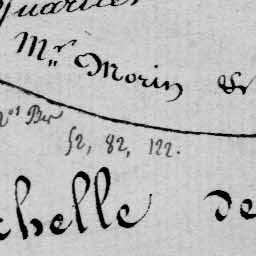 Quartier
Mr Morin &
52, 82, 122.
chelle de